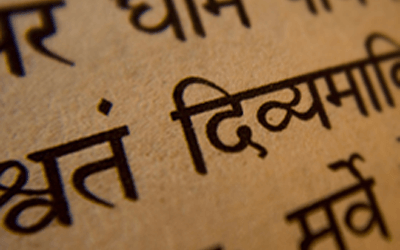 धाम
श्वतं दिव्यमादि
सर्वे